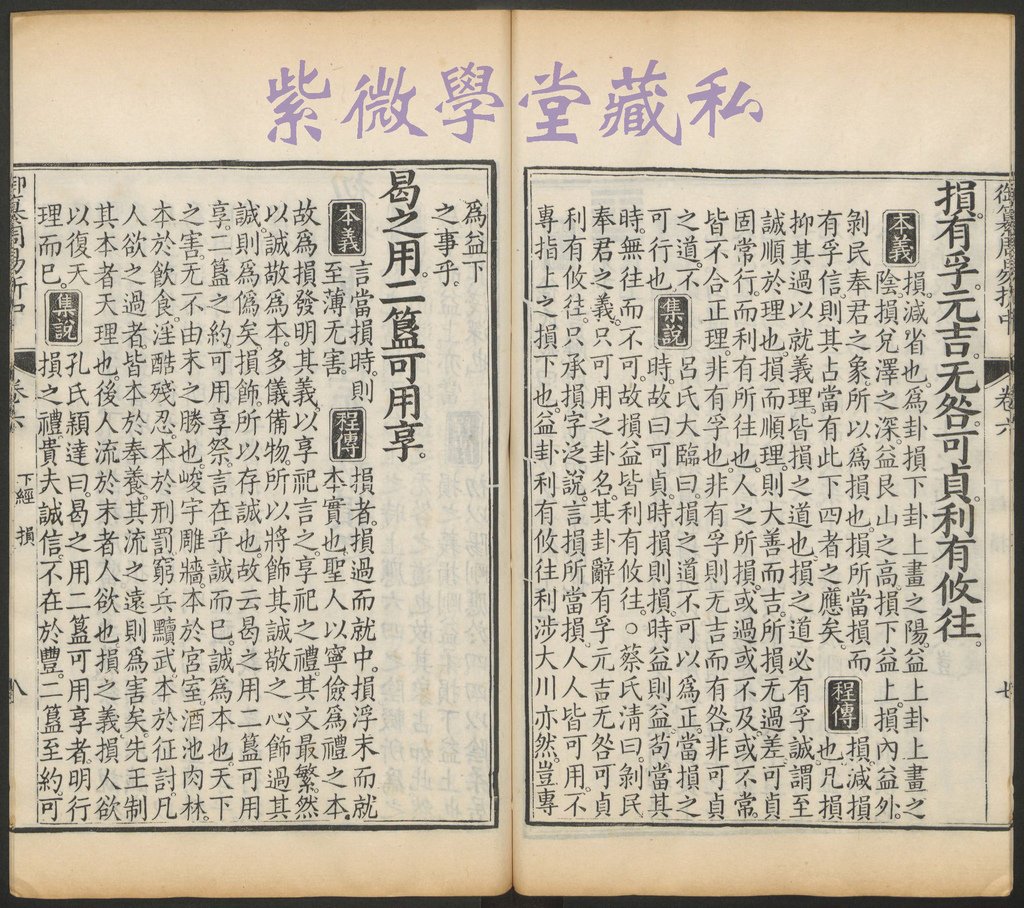 紫微學堂藏私
御纂周易折中 卷六 七
損。有孚元吉。无咎。可貞。利有攸往。
本義 損。減省也。爲卦損下卦上畫之陽。益上卦上畫之
陰。損兌澤之深。益艮山之高。損下益上。損內益外。
剝民奉君之象。所以爲損也。損所當損。而
有孚信。則其占當有此下四者之應矣。 程傳 損。減損
也。凡損
抑其過以就義理。皆損之道也。損之道。必有孚誠。謂至
誠順於理也。損而順理。則大善而吉。所損无過差。可貞
固常行。而利有所往也。人之所損。或過或不及或不常。
皆不合正理。非有孚也。非有孚則无吉而有咎。非可貞
之道。不
可行也。 集說 呂氏大臨曰。損之道。不可以爲正。當損之
時。故曰可貞。時損則損。時益則益。苟當其
時。無往而不可。故損益皆利有攸往。○蔡氏淸曰。剝民
奉君之義。只可用之卦名。其卦辭有孚元吉无咎可貞
利有攸往。只承損字泛說。言損所當損。人人皆可用。不
專指上之損下也。益卦利有攸往利涉大川亦然。豈專
爲益下
之事乎。
曷之用。二簋可用享。
本義 言當損時。則
至薄无害。 程傳 損者。損過而就中。損浮末而就
本實也。聖人以寧儉爲禮之本。
故爲損發明其義。以享祀言之。享祀之禮。其文最繁。然
以誠敬爲本。多儀備物。所以將飾其誠敬之心。飾過其
誠。則爲僞矣。損飾。所以存誠也。故云曷之用二簋可用
享。二簋之約。可用享祭。言在乎誠而巳。誠爲本也。天下
之害。无不由末之勝也。峻宇雕牆。本於宮室。酒池肉林。
本於飮食。淫酷殘忍。本於刑罰。窮兵黷武。本於征討。凡
人欲之過者。皆本於奉養。其流之遠。則爲害矣。先王制
其本者。天理也。後人流於末者。人欲也。損之義。損人欲
以復天
理而巳。 集說 孔氏穎達曰。曷之用二簋可用享者。明行
損之禮。貴夫誠信。不在於豐。二簋至約。可
御纂周易折中 卷六 下經 損 八